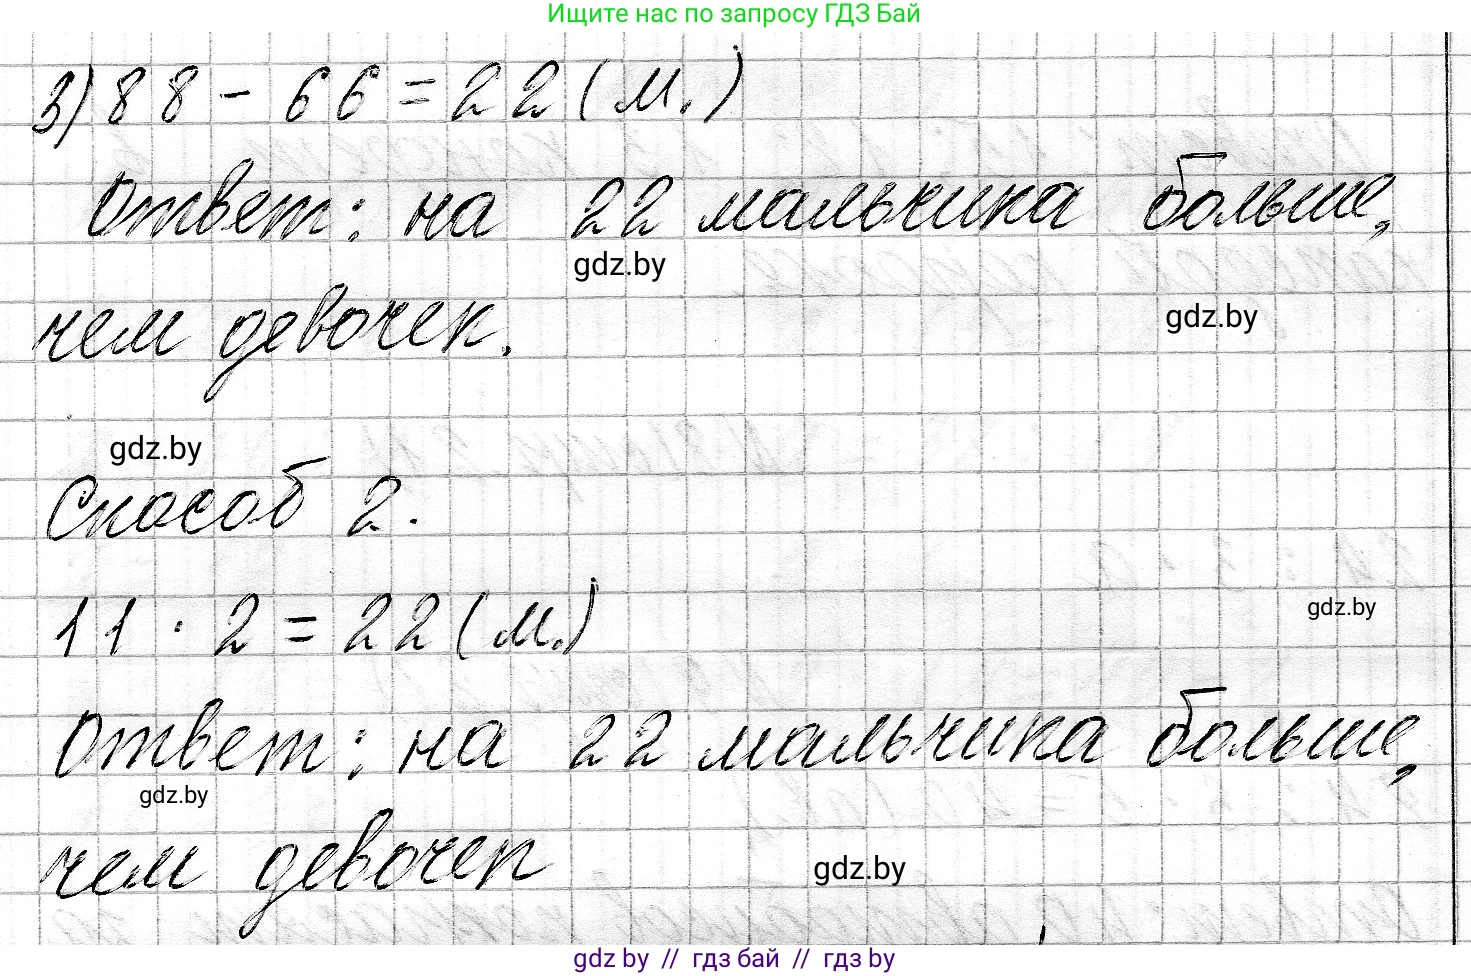 Ищите нас по запросу ГДЗ Бай
3) 88 - 66 = 22 (м.)
Ответ: на 22 мальчика больше,
gdz.by
чем девочек.
gdz.by
gdz.by
Способ 2.
11 · 2 = 22 (м.)
gdz.by
Ответ: на 22 мальчика больше,
gdz.by
чем девочек
gdz.by
gdz by // гдз бай // гдз by